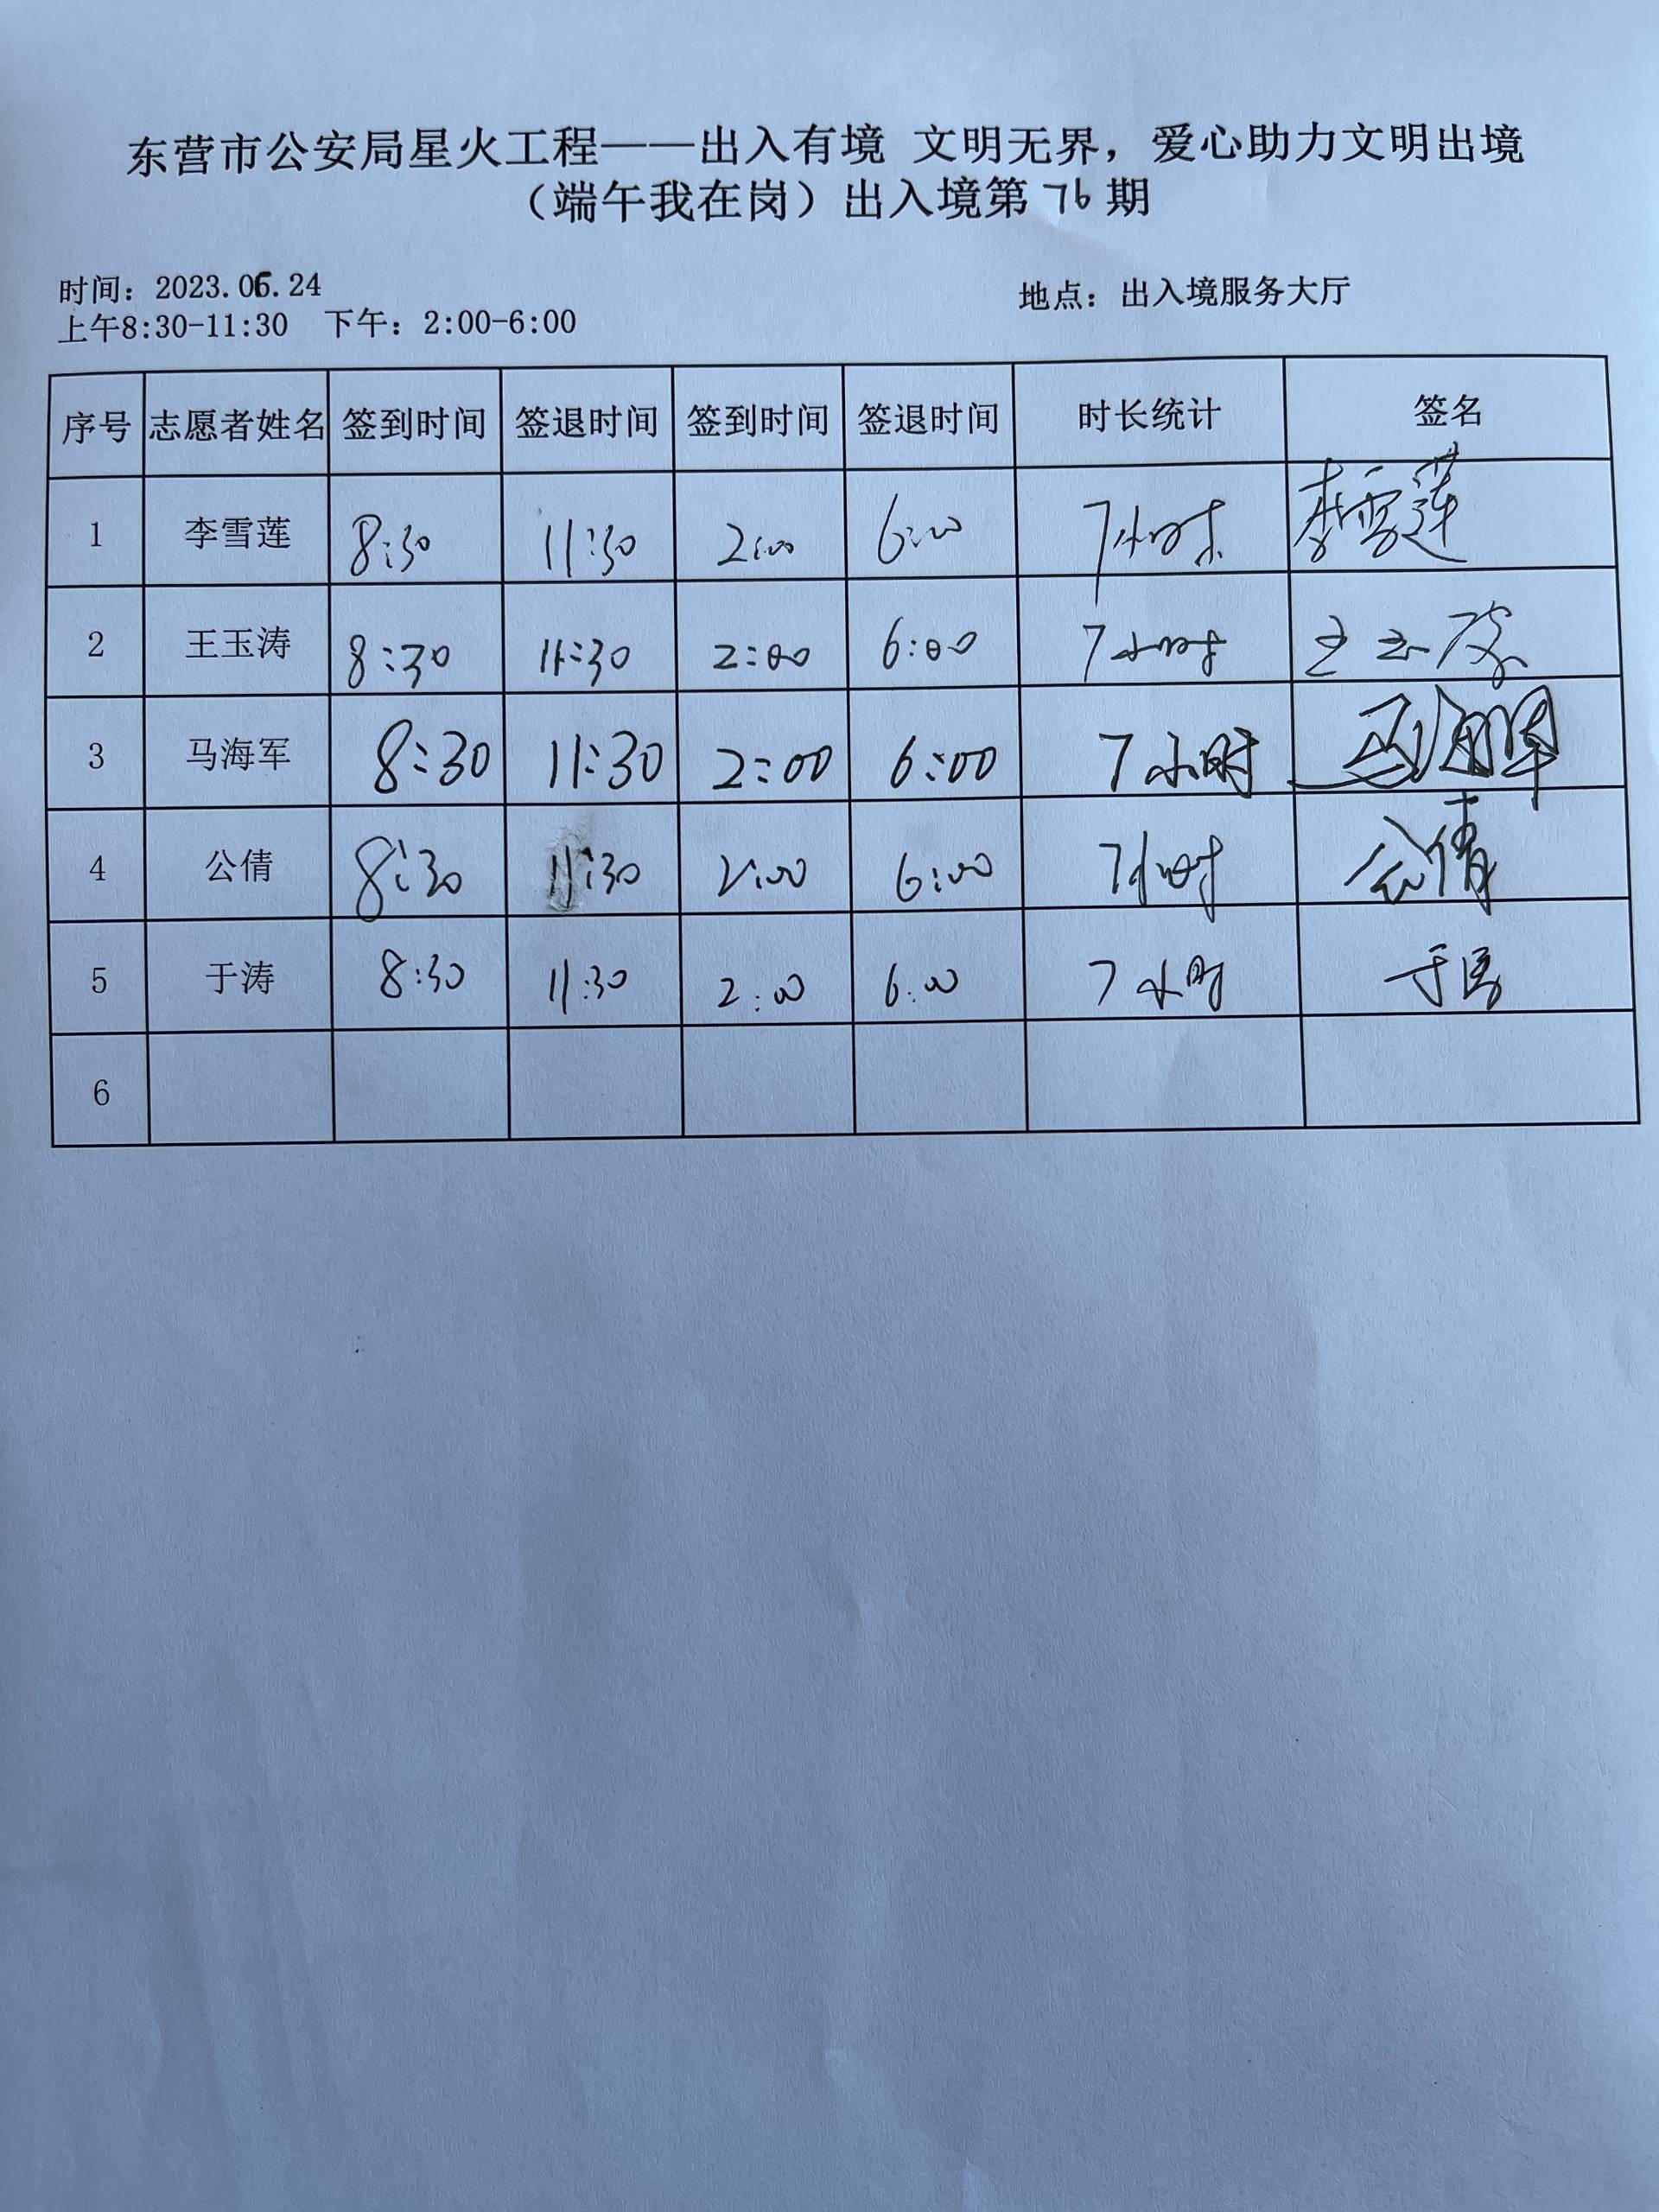 东营市公安局星火工程——出入有境 文明无界，爱心助力文明出境
（端午我在岗）出入境第 76 期
时间：2023.06.24
地点：出入境服务大厅
上午8:30-11:30 下午：2:00-6:00
序号 志愿者姓名 签到时间 签退时间 签到时间 签退时间 时长统计 签名
1 李雪莲 8:30 11:30 2:00 6:00 7小时 李雪莲
2 王玉涛 8:30 11:30 2:00 6:00 7小时 王玉涛
3 马海军 8:30 11:30 2:00 6:00 7小时 马海军
4 公倩 8:30 11:30 2:00 6:00 7小时 公倩
5 于涛 8:30 11:30 2:00 6:00 7小时 于涛
6